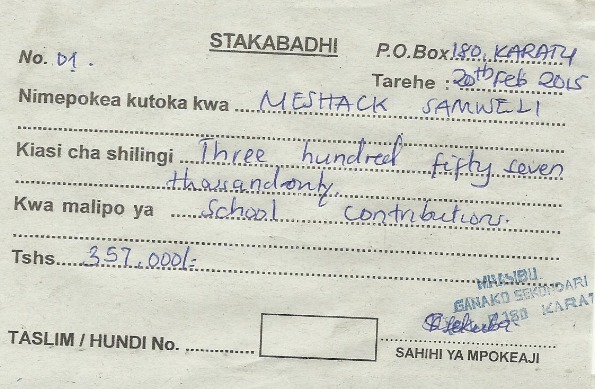 STAKABADHI
No. 01. P.O.Box 180, KARATU
Tarehe : 20th Feb 2015
Nimepokea kutoka kwa MESHACK SAMWELI
Kiasi cha shilingi Three hundred fifty seven
thassand only.
Kwa malipo ya School contributions.
Tshs. 357,000/=
MHASIBU
GANAKO SEKONDARI
180 KARAT
TASLIM / HUNDI No. ..........
SAHIHI YA MPOKEAJI